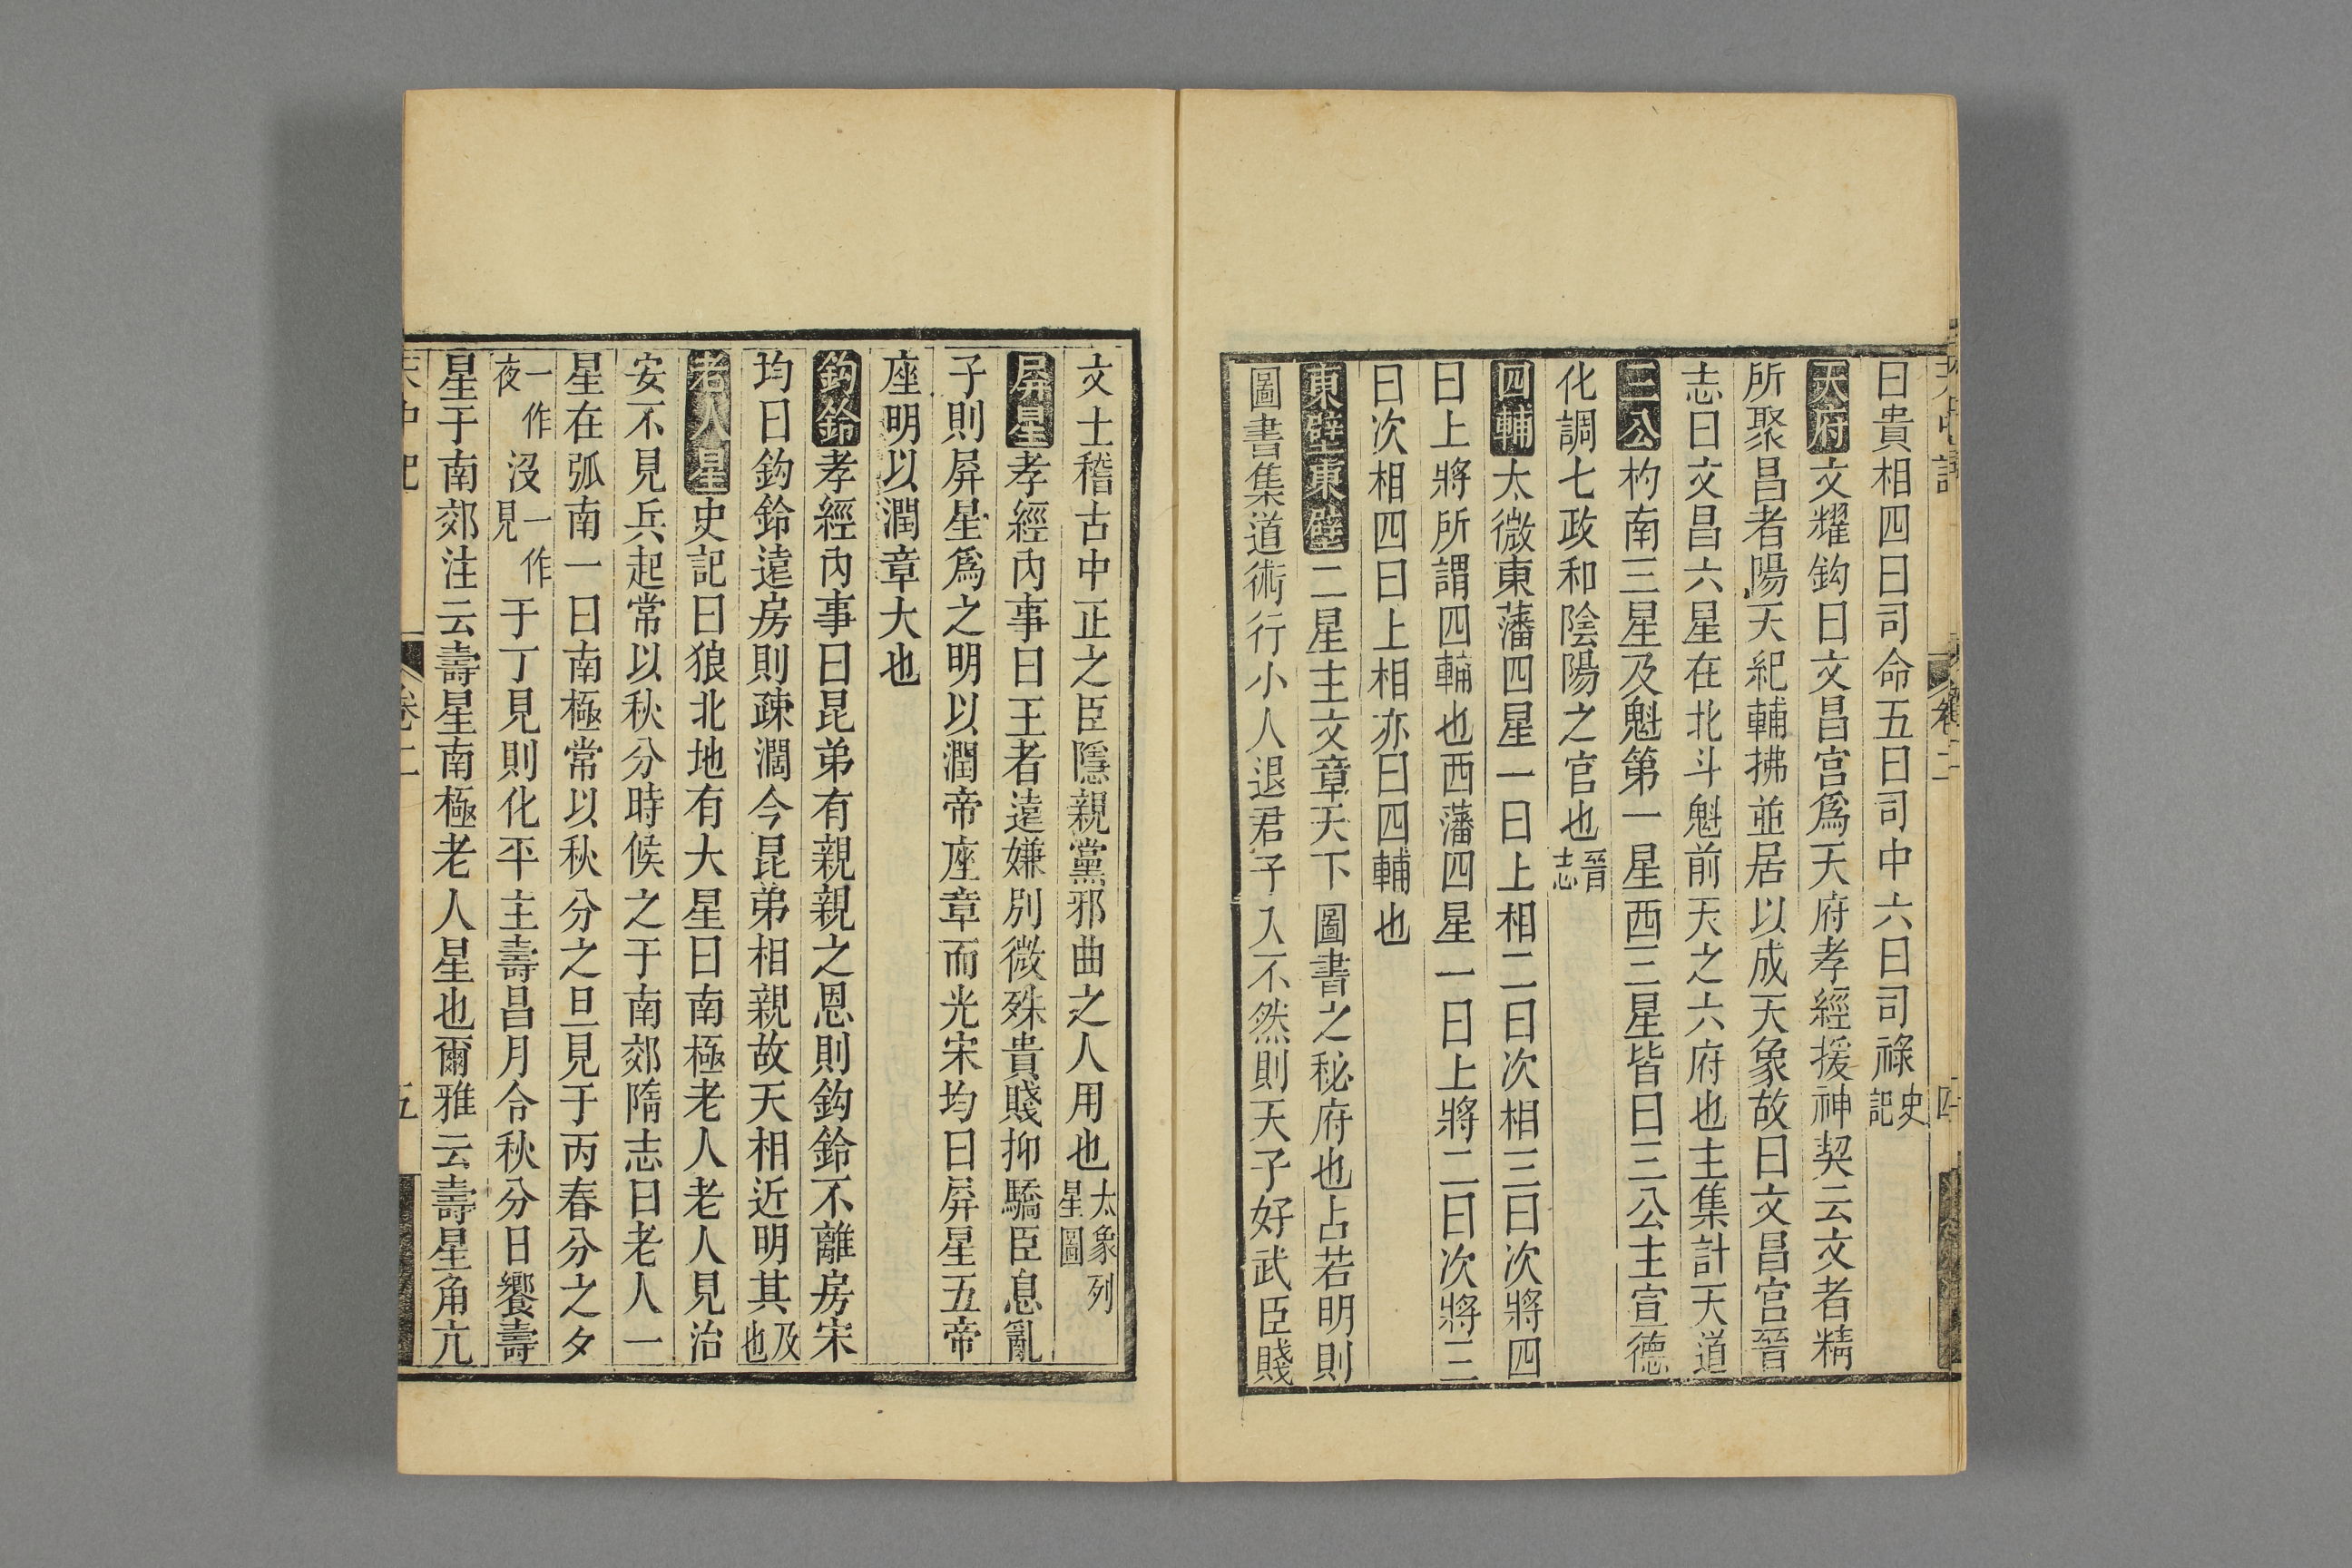 曰貴相四曰司命五曰司中六曰司祿史記
天府文耀鈎曰文昌宫爲天府孝經援神契云文者精
所聚昌者陽天紀輔拂並居以成天象故曰文昌宫晉
志曰文昌六星在北斗魁前天之六府也主集計天道
三公杓南三星及魁第一星西三星皆曰三公主宣德
化調七政和陰陽之官也晉志
四輔太微東藩四星一曰上相二曰次相三曰次將四
曰上將所謂四輔也西藩四星一曰上將二曰次將三
曰次相四曰上相亦曰四輔也
東壁東壁二星主文章天下圖書之秘府也占若明則
圖書集道術行小人退君子入不然則天子好武臣賤
文士稽古中正之臣隱親黨邪曲之人用也太象列星圖
屛星孝經內事曰王者遠嫌別微殊貴賤抑驕臣息亂
子則屛星爲之明以潤帝座章而光宋均曰屛星五帝
座明以潤章大也
鈎鈴孝經內事曰昆弟有親親之恩則鈎鈴不離房宋
均曰鈎鈴遠房則疎濶今昆弟相親故天相近明其及也
老人星史記曰狼北地有大星曰南極老人老人見治
安不見兵起常以秋分時候之于南郊隋志曰老人一
星在弧南一曰南極常以秋分之旦見于丙春分之夕
一作夜沒一作見于丁見則化平主壽昌月令秋分日饗壽
星于南郊注云壽星南極老人星也爾雅云壽星角亢
卷二
五